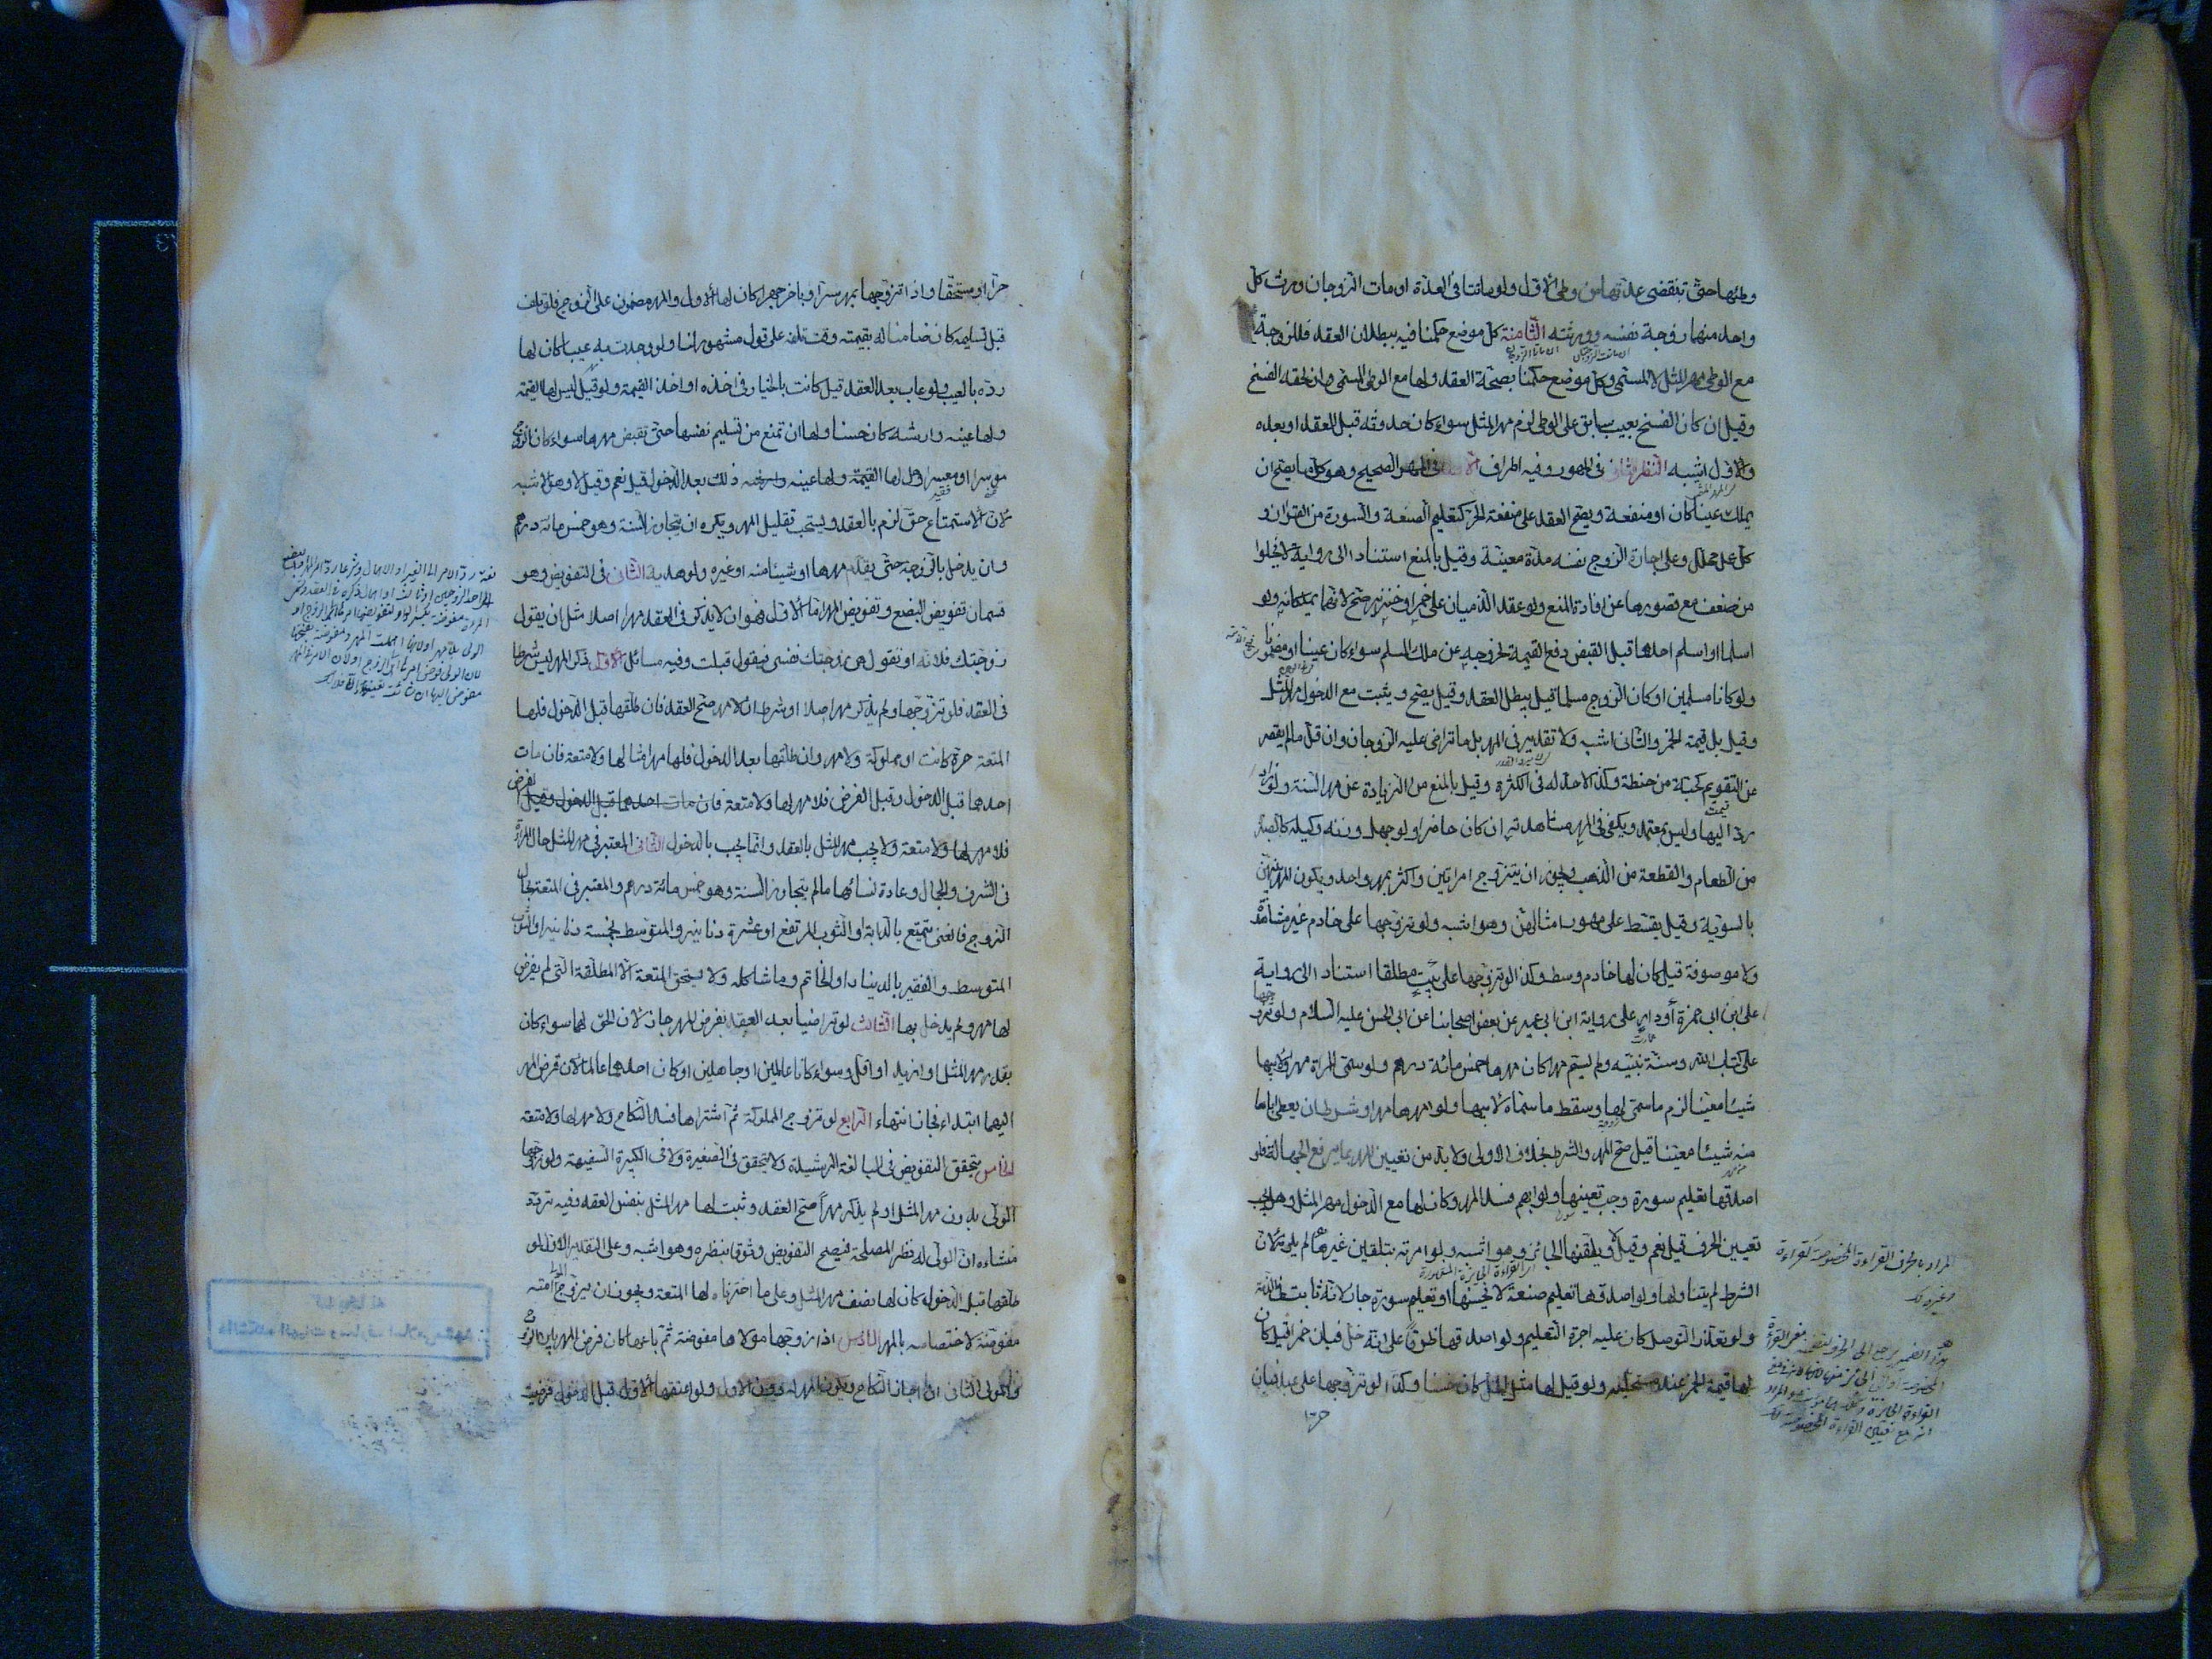 وطئها حتى تنقضي عدتها من وطئ الاول ولو ماتتا في العدة او مات الزوجان ورث كل
واحد منهما زوجة نفسه وورثته الثامنة كل موضع حكمنا فيه ببطلان العقد فللزوجة
مع الوطي مهر المثل لا المسمى وكل موضع حكمنا بصحة العقد ولها مع الوطي المسمى وان لحقه الفسخ
وقيل ان كان الفسخ بعيب سابق على الوطي لزم مهر المثل سواء كان حدوثه قبل العقد او بعده
والاول اشبه النظر الثاني في المهور وفيه اطراف الاول في المهر الصحيح وهو كل ما يصح ان
يملك عينا كان او منفعة ويصح العقد على منفعة الحر كتعليم الصنعة والسورة من القران و
كل عمل محلل وعلى اجارة الزوج نفسه مدة معينة وقيل بالمنع استنادا الى رواية لا تخلوا
من ضعف مع قصورها عن افادة المنع ولو عقد الذميان على خمر او خنزير صح لانهما يملكانه ولو
اسلما او اسلم احدهما قبل القبض دفع القيمة لخروجه عن ملك المسلم سواء كان عينا او مضمونا
ولو كانا مسلمين او كان الزوج مسلما قيل يبطل العقد وقيل يصح ويثبت مع الدخول مهر المثل
وقيل بل قيمة الخمر والثاني اشبه ولا تقدير في المهر بل ما تراضى عليه الزوجان وان قل ما لم يقصر
عن التقويم كحبة من حنطة وكذا لا حد له في الكثرة وقيل بالمنع من الزيادة عن مهر السنة ولو زاد
رد اليها وليس بمعتمد ويكفي في المهر مشاهدته ان كان حاضرا ولو جهل وزنه وكيله كالصبرة
من الطعام والقطعة من الذهب ويجوز ان يتزوج امراتين واكثر بمهر واحد ويكون المهر بينهن
بالسوية وقيل يقسط على مهور امثالهن وهو اشبه ولو تزوجها على خادم غير مشاهد
ولا موصوفة قيل كان لها خادم وسط وكذا لو تزوجها على بيت مطلقا استنادا الى رواية
على ابن ابي حمزة أو دار على رواية ابن ابي عمير عن بعض اصحابنا عن ابي الحسن عليه السلام ولو تزوجها
على كتاب الله وسنة نبيه ولم يسم مهرا كان مهرها خمس مائة درهم ولو سمى للمراة مهرا ولابيها
شيئا معينا لزم ما سمى لها وسقط ما سماه لابيها ولو امهرها مهرا وشرط ان يعطى اباها
منه شيئا معينا قيل صح المهر والشرط بخلاف الاولى ولا بد من تعيين المهر بما يرفع الجهالة فلو
اصدقها تعليم سورة وجب تعيينها ولو ابهم فسد المهر وكان لها مع الدخول مهر المثل وهل يجب
تعيين الحرف قيل نعم وقيل لا ويلقنها الجائز وهو اشبه ولو امرته بتلقين غيرها لم يلزم لان
الشرط لم يتناولها ولو اصدقها تعليم صنعة لا يحسنها او تعليم سورة جاز لانه ثابت في الذمة
ولو تعذر التوصل كان عليه اجرة التعليم ولو اصدقها ظرفا على انه خل فبان خمرا قيل كان
لها قيمة الخمر عند مستحليه ولو قيل لها مثل الخل كان حسنا وكذا لو تزوجها على عبد فبان
حرا
المراد بالحرف القراءة المخصوصة كقراءة
القراءة الجائزة
حرا او مستحقا واذا تزوجها بمهر سرا وباخر جهرا كان لها الاول والمهر مضمون على الزوج فلو تلف
قبل تسليمه كان ضامنا له بقيمته وقت تلفه على قول مشهور لنا ولو وجدت به عيبا كان لها
رده بالعيب ولو عاب بعد العقد قيل كانت بالخيار في اخذه او اخذ القيمة ولو قيل ليس لها القيمة
ولها عينه وارشه كان حسنا ولها ان تمنع من تسليم نفسها حتى تقبض مهرها سواء كان الزوج
موسرا او معسرا وهل لها ذلك بعد الدخول قيل نعم وقيل لا وهو الاشبه
لان الاستمتاع حق لزم بالعقد ويستحب تقليل المهر ويكره ان يتجاوز السنة وهو خمس مائة درهم
وان يدخل بالزوجة حتى يقدم مهرها او شيئا منه او غيره ولو هدية الثاني في التفويض وهو
قسمان تفويض البضع وتفويض المهر اما الاول فهو ان لا يذكر في العقد مهرا اصلا مثل ان يقول
زوجتك فلانة او تقول هي زوجتك نفسي فيقول قبلت وفيه مسائل الاولى ذكر المهر ليس شرطا
في العقد فلو تزوجها ولم يذكر مهرا اصلا او شرط ان لا مهر صح العقد فان طلقها قبل الدخول فلها
المتعة حرة كانت او مملوكة ولا مهر وان طلقها بعد الدخول فلها مهر امثالها ولا متعة فان مات
احدهما قبل الدخول وقبل الفرض فلا مهر لها ولا متعة فان مات احدهما قبل الدخول وقبل الفرض
فلا مهر لها ولا متعة ولا يجب مهر المثل بالعقد وانما يجب بالدخول الثاني المعتبر في مهر المثل حال المراة
في الشرف والجمال وعادة نسائها ما لم يتجاوز السنة وهو خمس مائة درهم والمعتبر في المتعة بحال
الزوج فالغني يتمتع بالدابة او الثوب المرتفع او عشرة دنانير والمتوسط بخمسة دنانير او الثوب
المتوسط والفقير بالدينار او الخاتم وما شاكله ولا يستحق المتعة الا المطلقة التي لم يفرض
لها مهر ولم يدخل بها الثالث لو تراضيا بعد العقد بفرض المهر جاز لان الحق لهما سواء كان
بقدر مهر المثل او ازيد او اقل وسواء كانا عالمين او جاهلين او كان احدهما عالما لان فرض المهر
اليهما ابتداء فجاز انتهاء الرابع لو تزوج المملوكة ثم اشتراها فسد النكاح ولا مهر لها ولا متعة
الخامس يتحقق التفويض في البالغة الرشيدة ولا يتحقق في الصغيرة ولا في الكبيرة السفيهة ولو زوجها
الولي بدون مهر المثل او لم يذكر مهراً صح العقد وثبت لها مهر المثل بنفس العقد وفيه تردد
منشاءه ان الولي له نظر المصلحة فيصح التفويض وثوقا بنظره وهو اشبه وعلى التقدير الاول لو
طلقها قبل الدخول كان لها نصف مهر المثل وعلى ما اخترناه لها المتعة ويجوز ان يزوج المولى امته
مفوضة لاختصاصه بالمهر السادس اذا زوجها مولاها مفوضة ثم باعها كان فرض المهر بين الزوج
والمولى الثاني ان اجاز النكاح ويكون المهر له دون الاول ولو اعتقها الاول قبل الدخول فرضيت